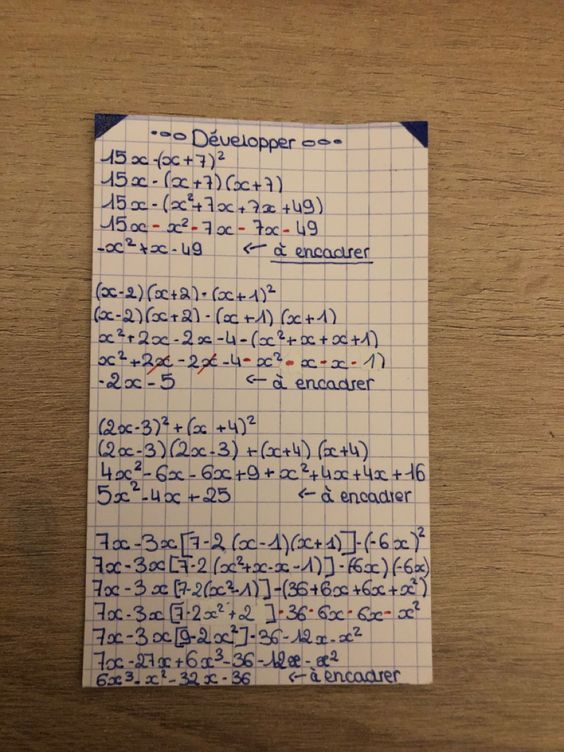 Développer
15x-(x+7)²
15x-(x+7)(x+7)
15x-(x²+7x+7x+49)
15x-x²-7x-7x-49
-x²+x-49 ← à encadrer
(x-2)(x+2)-(x+1)²
(x-2)(x+2)-(x+1)(x+1)
x²+2x-2x-4-(x²+x+x+1)
x²+2x-2x-4-x²-x-x-1)
-2x-5 ← à encadrer
(2x-3)²+(x+4)²
(2x-3)(2x-3)+(x+4)(x+4)
4x²-6x-6x+9+x²+4x+4x+16
5x²-4x+25 ← à encadrer
7x-3x[7-2(x-1)(x+1)]-(-6x)²
7x-3x[7-2(x²+x-x-1)]-(-6x)(-6x)
7x-3x[7-2(x²-1)]-(36+6x+6x+x²)
7x-3x[7-2x²+2]-36-6x-6x-x²
7x-3x[9-2x²]-36-12x-x²
7x-27x+6x³-36-12x-x²
6x³-x²-32x-36 ← à encadrer